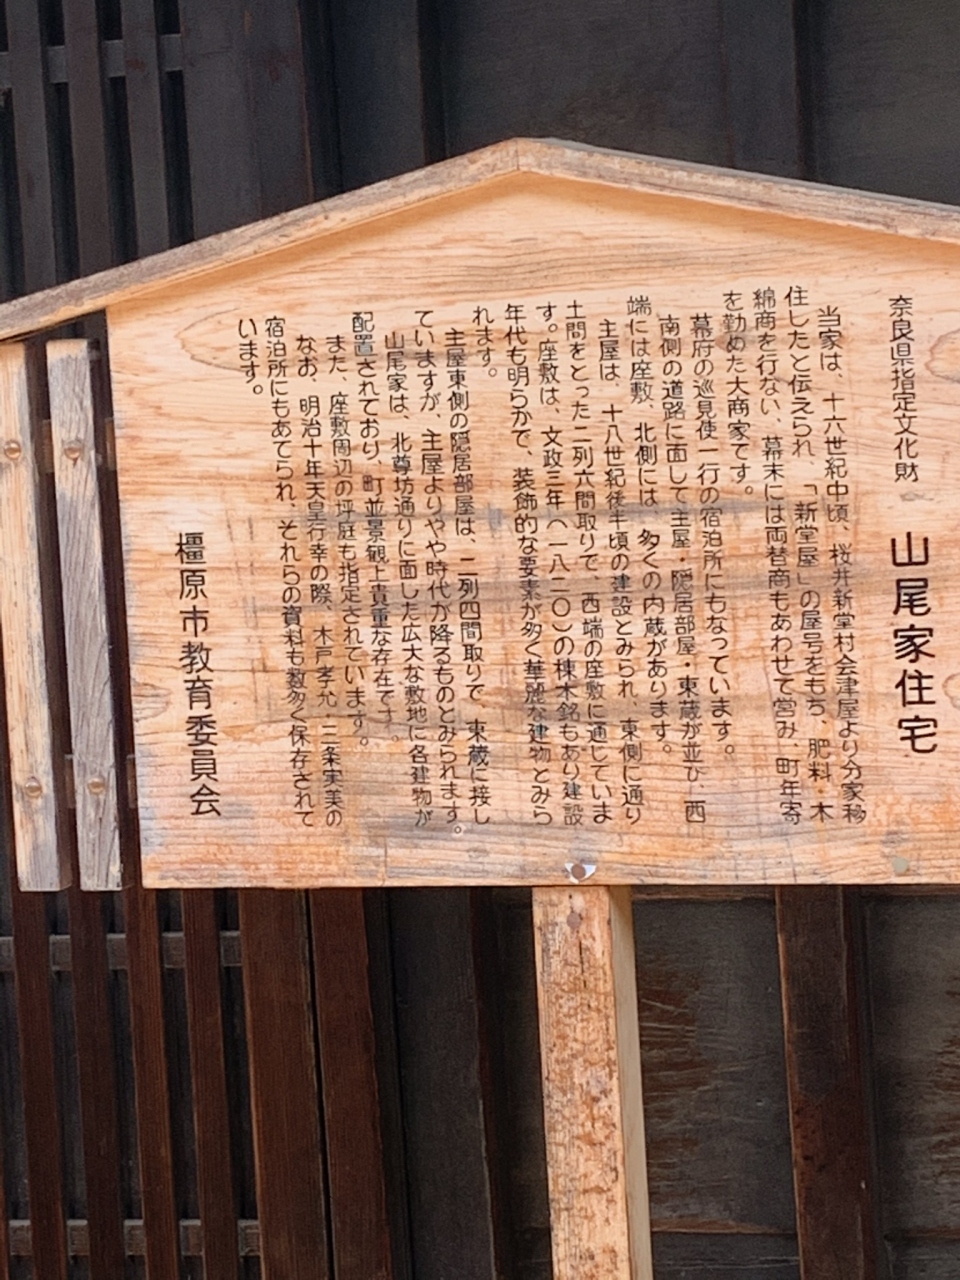 奈良県指定文化財　山尾家住宅
当家は、十六世紀中頃、桜井新堂村会津屋より分家移
住したと伝えられ、「新堂屋」の屋号をもち、肥料・木
綿商を行ない、幕末には両替商もあわせて営み、町年寄
を勤めた大商家です。
幕府の巡見使一行の宿泊所にもなっています。
南側の道路に面して主屋・隠居部屋・東蔵が並び、西
端には座敷、北側には、多くの内蔵があります。
主屋は、十八世紀後半頃の建設とみられ、東側に通り
土間をとった二列六間取りで、西端の座敷に通じていま
す。座敷は、文政三年（一八二〇）の棟木銘もあり建設
年代も明らかで、装飾的な要素が多く華麗な建物とみら
れます。
主屋東側の隠居部屋は、二列四間取りで、東蔵に接し
ていますが、主屋よりやや時代が降るものとみられます。
山尾家は、北尊坊通りに面した広大な敷地に各建物が
配置されており、町並景観上貴重な存在です。
また、座敷周辺の坪庭も指定されています。
なお、明治十年天皇行幸の際、木戸孝允、三条実美の
宿泊所にもあてられ、それらの資料も数多く保存されて
います。
橿原市教育委員会